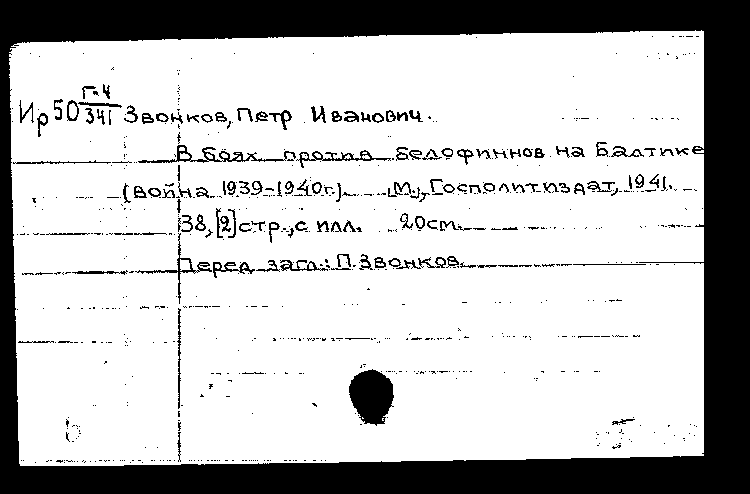 Ир 50 Г-4/341 Звонков, Петр Иванович.
В боях против белофиннов на Балтике
(война 1939-1940г.). М., Госполитиздат, 1941.
38, [2] стр., с илл. 20см.
Перед загл.: П. Звонков.